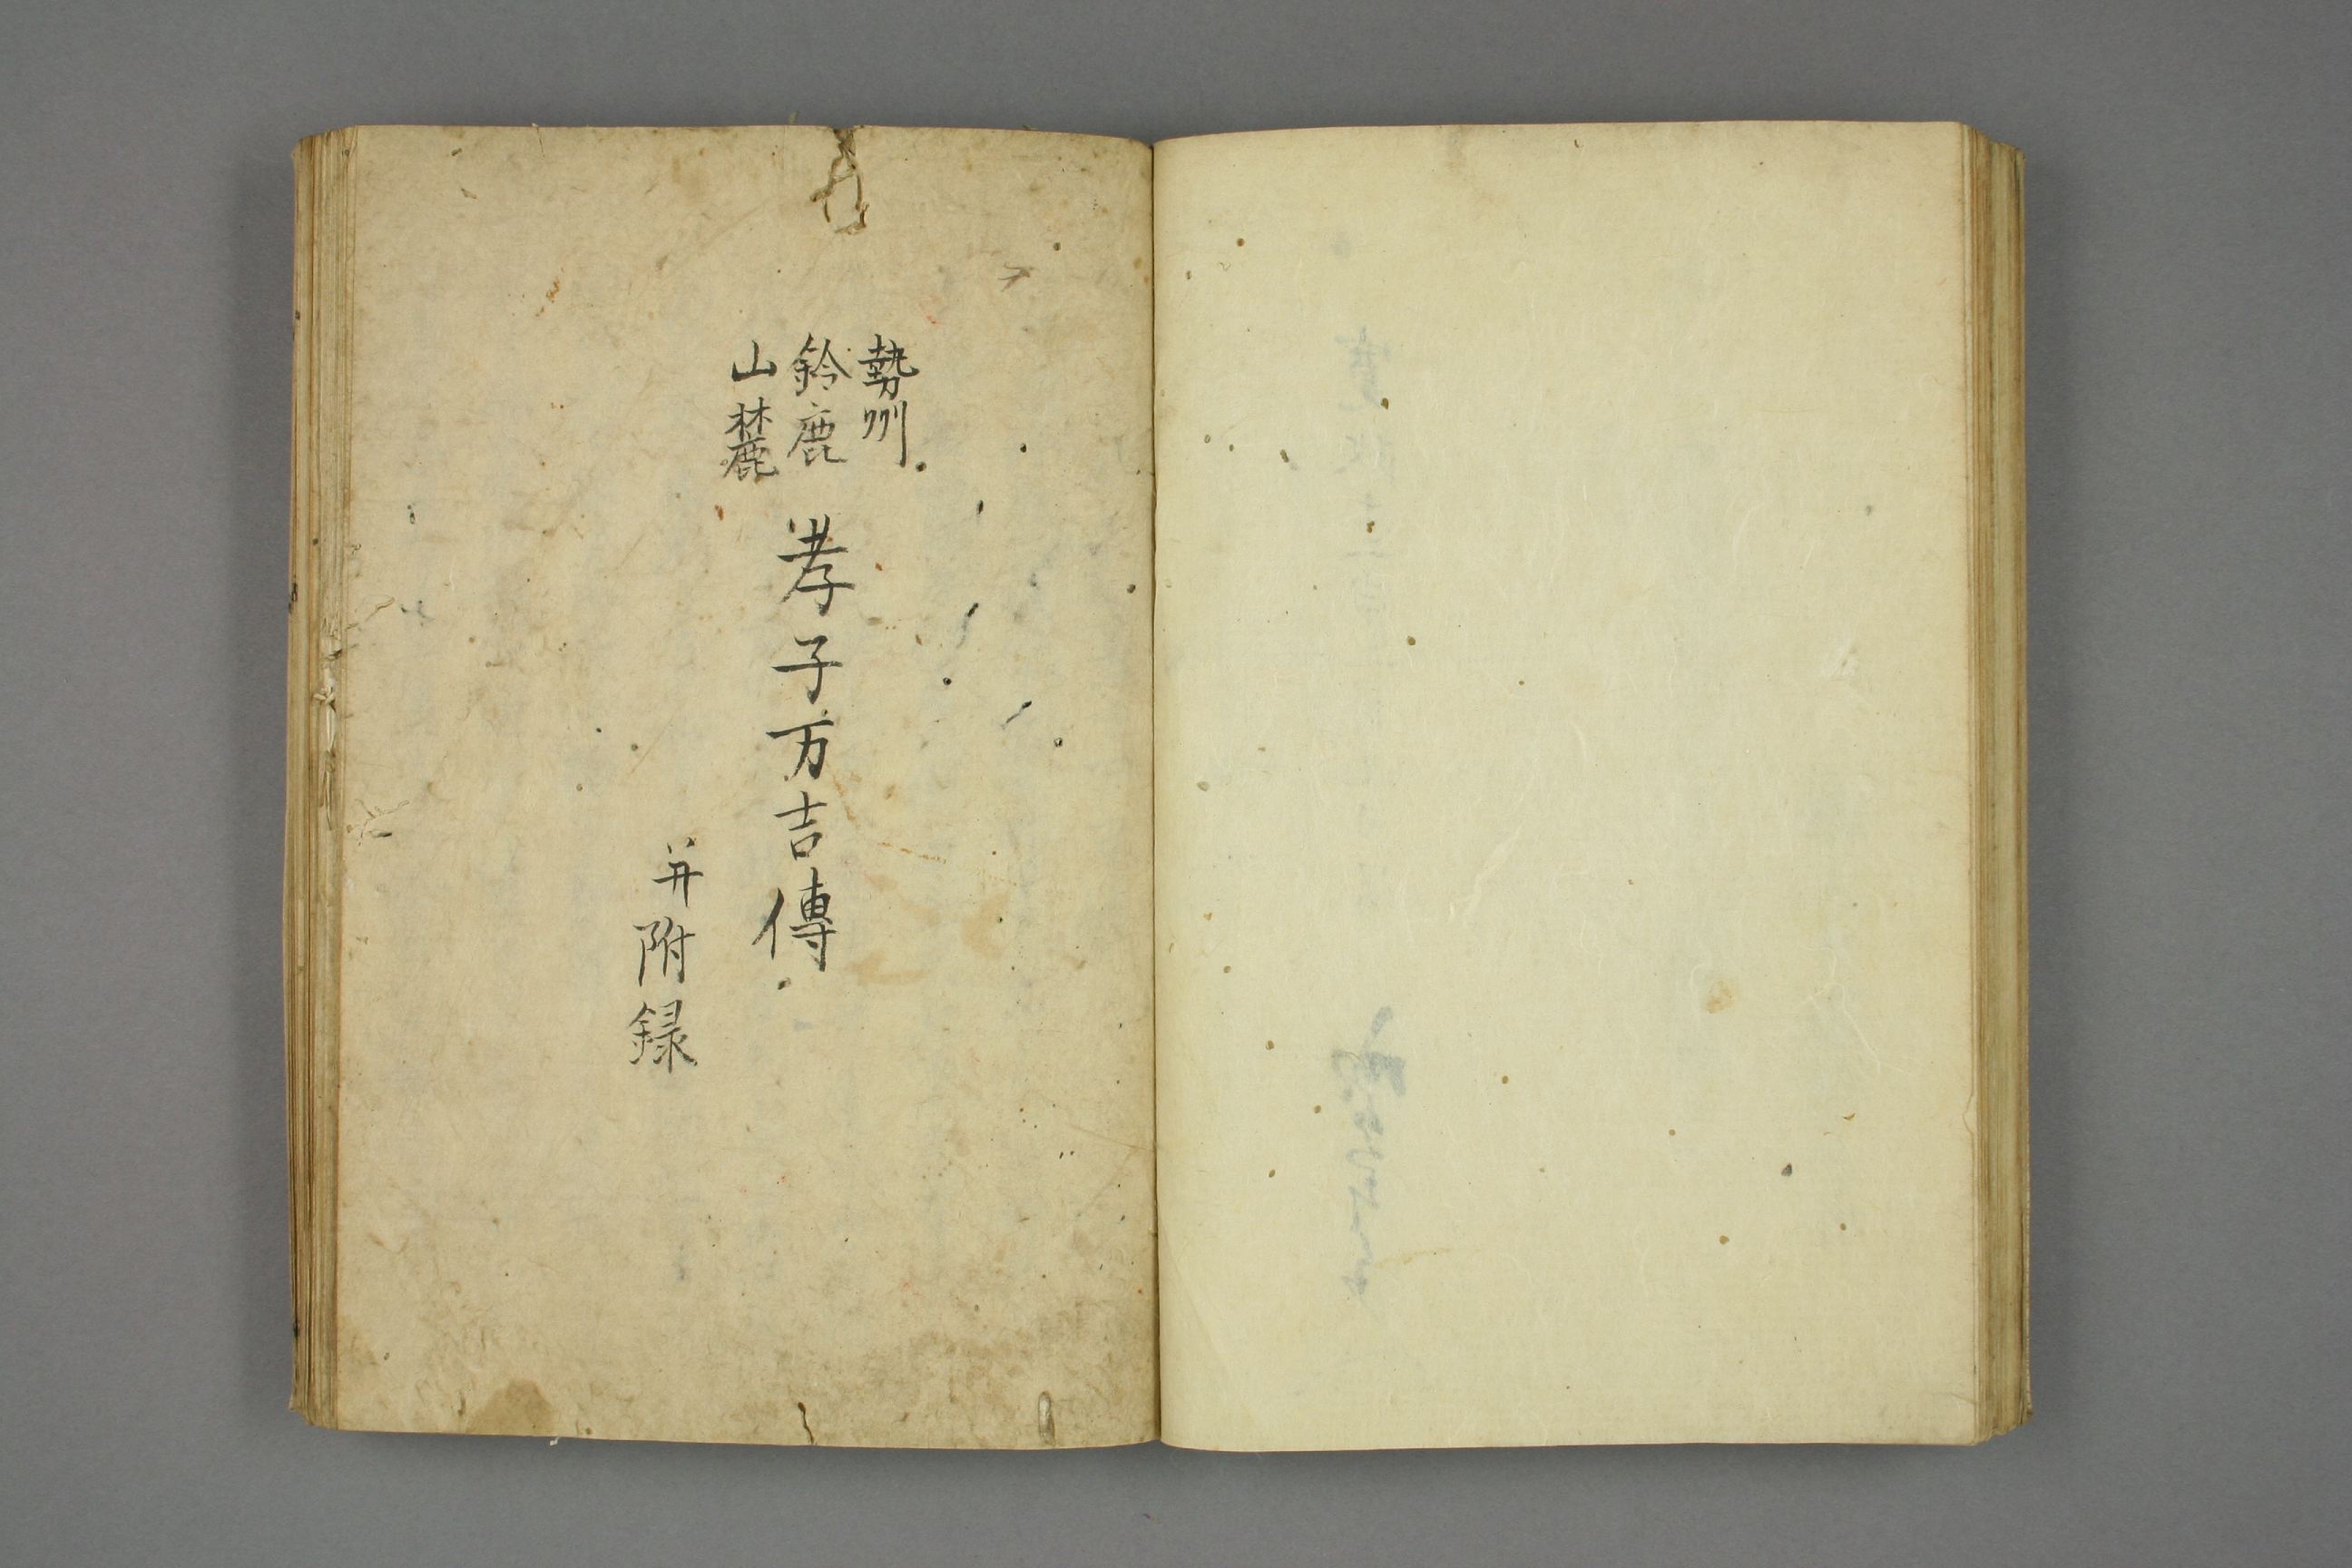 勢州
鈴鹿
山麓
孝子万吉傳
并附録